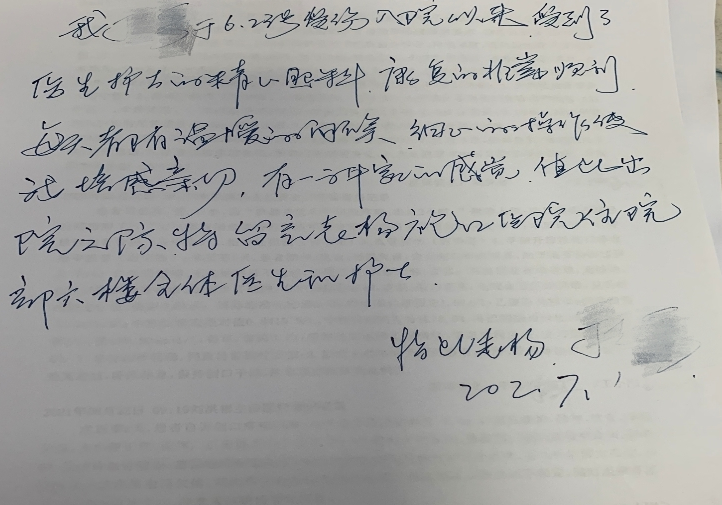 我 于6.23号受伤入院以来,受到了
医生护士的精心照料,康复的非常顺利.
每天都有温暖的问候,细心的操作使
我倍感亲切,有一种家的感觉,值此出
院之际,特留言表扬 医院住院
部六楼全体医生和护士.
特此表扬.
202.7.1